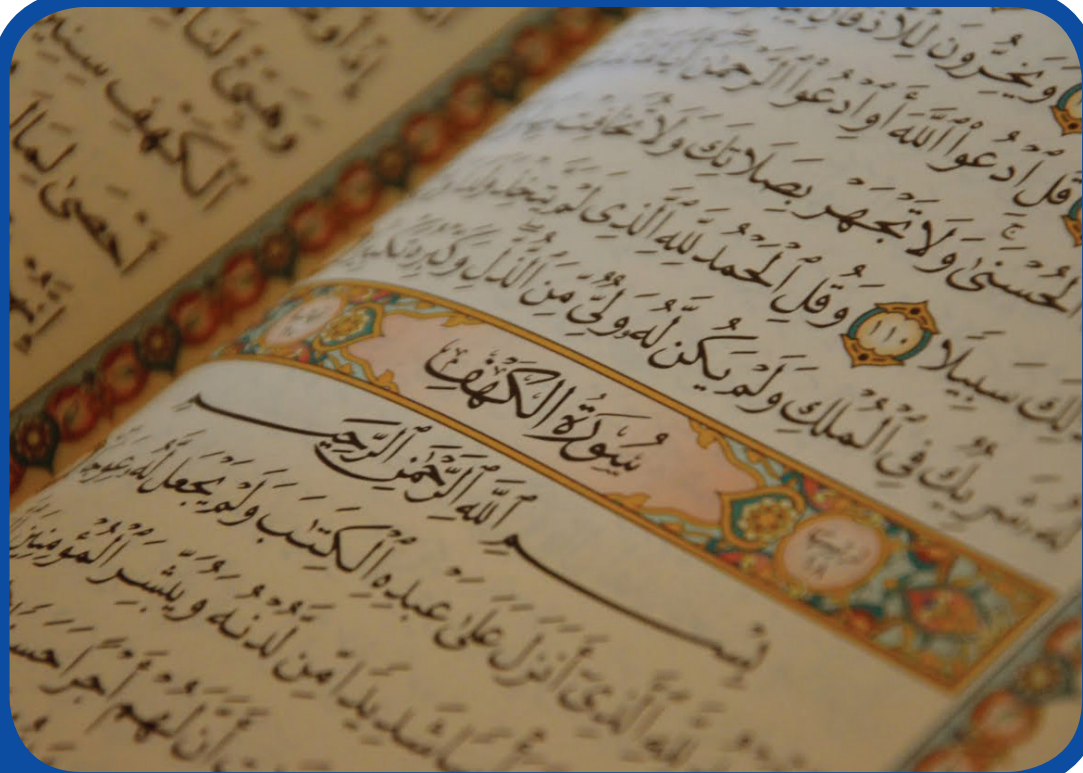 وَيَخِرُّونَ لِلْأَذْقَانِ
قُلِ ٱدْعُوا۟ ٱللَّهَ أَوِ ٱدْعُوا۟ ٱلرَّحْمَٰنَ
ٱلْحُسْنَىٰ وَلَا تَجْهَرْ بِصَلَاتِكَ وَلَا تُخَافِتْ
ذَٰلِكَ سَبِيلًا ١١٠ وَقُلِ ٱلْحَمْدُ لِلَّهِ ٱلَّذِى لَمْ يَتَّخِذْ وَلَدًا
لَّهُۥ شَرِيكٌ فِى ٱلْمُلْكِ وَلَمْ يَكُن لَّهُۥ وَلِىٌّ مِّنَ ٱلذُّلِّ وَكَبِّرْهُ
سُورَةُ الكَهْفِ
بِسْمِ ٱللَّهِ ٱلرَّحْمَٰنِ ٱلرَّحِيمِ
لِلَّهِ ٱلَّذِىٓ أَنزَلَ عَلَىٰ عَبْدِهِ ٱلْكِتَٰبَ وَلَمْ يَجْعَل لَّهُۥ عِوَجَا
شَدِيدًا مِّن لَّدُنْهُ وَيُبَشِّرَ ٱلْمُؤْمِنِينَ
أَنَّ لَهُمْ أَجْرًا حَسَنًا
وَهَيِّئْ لَنَا
ٱلْكَهْفِ سِنِينَ
أَحْصَىٰ لِمَا